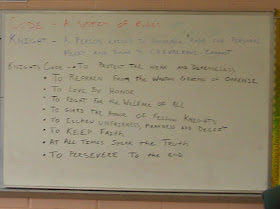 CODE - A SYSTEM OF RULES
KNIGHT - A PERSON RAISED TO HONORABLE RANK FOR PERSONAL
MERIT AND BOUND TO CHIVALROUS CONDUCT
KNIGHTS CODE - • TO PROTECT THE WEAK AND DEFENCELESS
• TO REFRAIN FROM THE WANTON GIVING OF OFFENSE
• TO LIVE BY HONOR
• TO FIGHT FOR THE WELFARE OF ALL
• TO GUARD THE HONOR OF FELLOW KNIGHTS
• TO ESCHEW UNFAIRNESS, MEANNESS AND DECEIT
• TO KEEP FAITH
• AT ALL TIMES SPEAK THE TRUTH
• TO PERSEVERE TO THE END